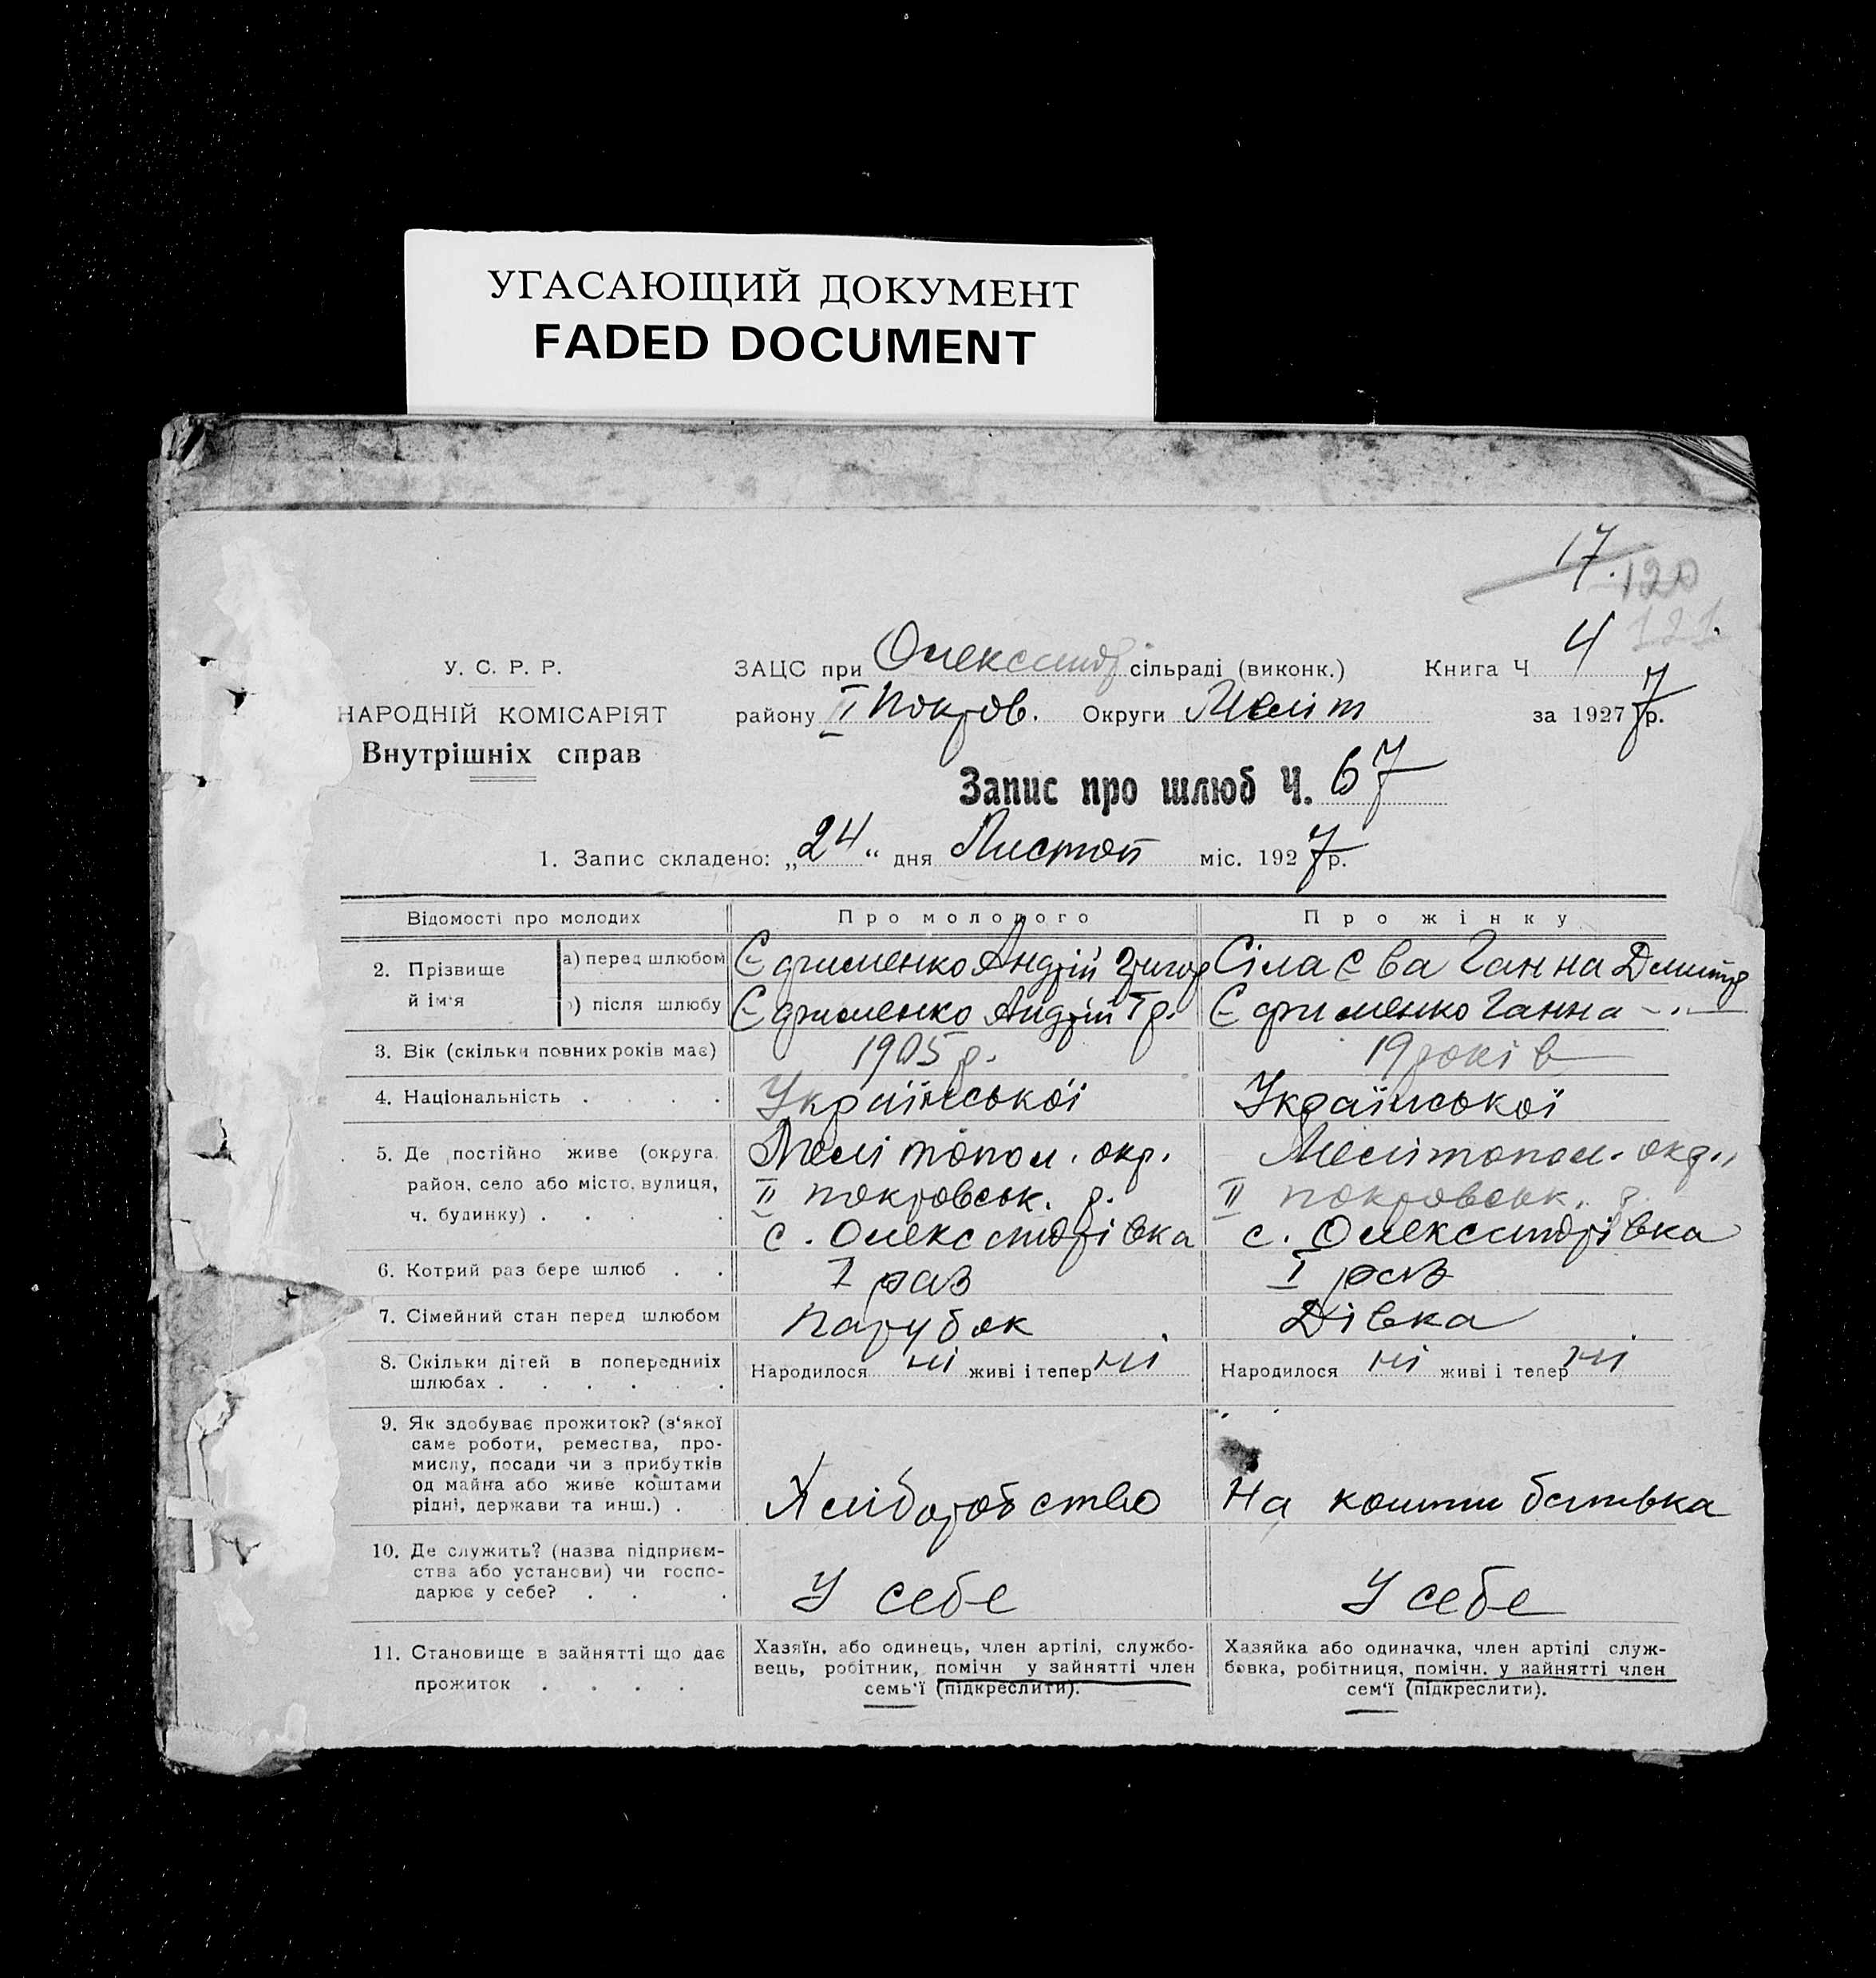 УГАСАЮЩИЙ ДОКУМЕНТ
FADED DOCUMENT
17.
120
121.
У. С. Р. Р.
НАРОДНІЙ КОМІСАРІЯТ
Внутрішніх справ
ЗАЦС при Олександр сільраді (виконк.) Книга Ч 4
району ІІ Покров. Округи Меліт за 1927 7р.
Запис про шлюб Ч. 67
1. Запис складено: „24“ дня Листоп міс. 1927р.
Відомості про молодих
Про молодого
Про жінку
2. Прізвище й ім'я
а) перед шлюбом
Єфименко Андрій Григор
Сілаєва Ганна Дмитр
б) після шлюбу
Єфименко Андрій Гр.
Єфименко Ганна -.-
3. Вік (скільки повних років має)
1905 р.
19 років
4. Національність . . . .
Української
Української
5. Де постійно живе (округа,
район, село або місто, вулиця,
ч. будинку) . . . .
Мелітопол. окр.
ІІ покровськ. р.
с. Олександрівка
Мелітопол. окр.,
ІІ покровськ. р.
с. Олександрівка
6. Котрий раз бере шлюб . .
І раз
І раз
7. Сімейний стан перед шлюбом
Парубок
Дівка
8. Скільки дітей в попередниіх
шлюбах . . . . . .
Народилося ні живі і тепер ні
Народилося ні живі і тепер ні
9. Як здобуває прожиток? (з'якої
саме роботи, ремества, про-
мислу, посади чи з прибутків
од майна або живе коштами
рідні, держави та инш.) .
Хліборобство
На кошти батька
10. Де служить? (назва підприєм-
ства або установи) чи госпо-
дарює у себе? . . .
У себе
У себе
11. Становище в зайнятті що дає
прожиток . . . .
Хазяїн, або одинець, член артілі, службо-
вець, робітник, помічн у зайнятті член
семь'ї (підкреслити).
Хазяйка або одиначка, член артілі служ-
бовка, робітниця, помічн. у зайнятті член
сем'ї (підкреслити).